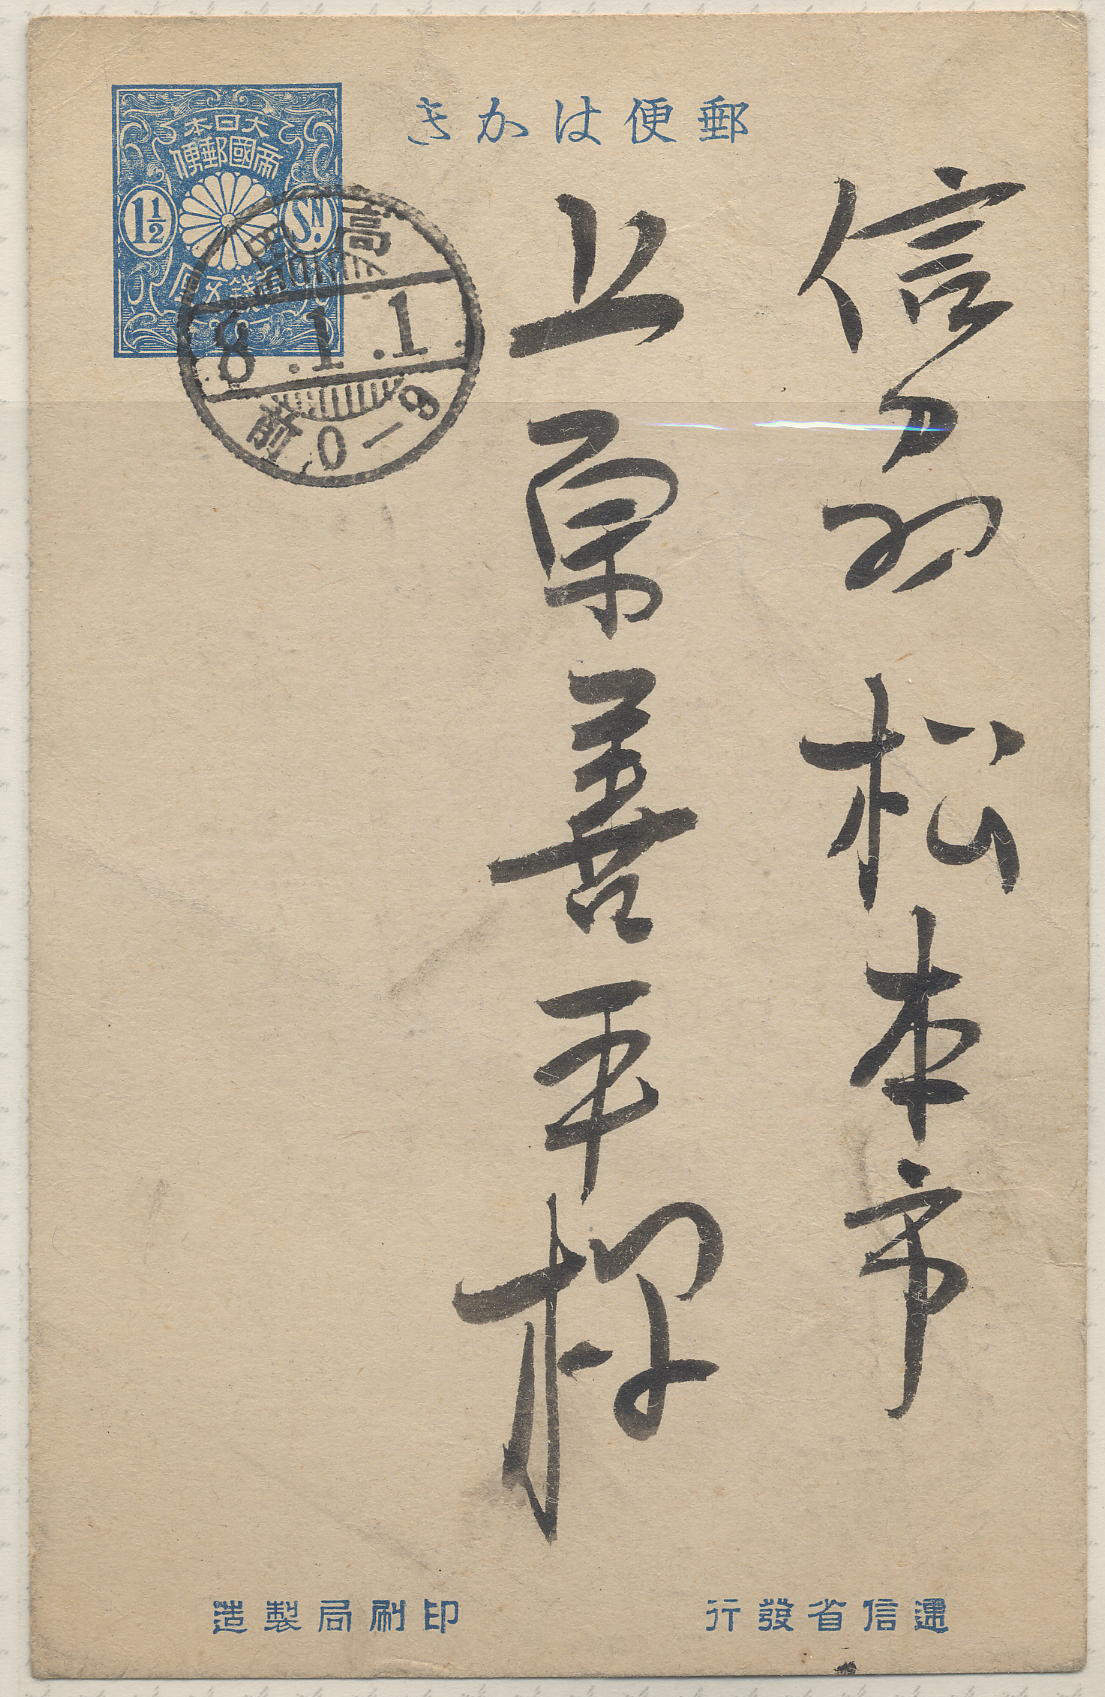 郵便はかき
大日本
帝國郵便
1½ Sɴ.
壹錢五厘
8.1.1
前0-9
信刕松本市
上原善平様
遞信省發行
印刷局製造